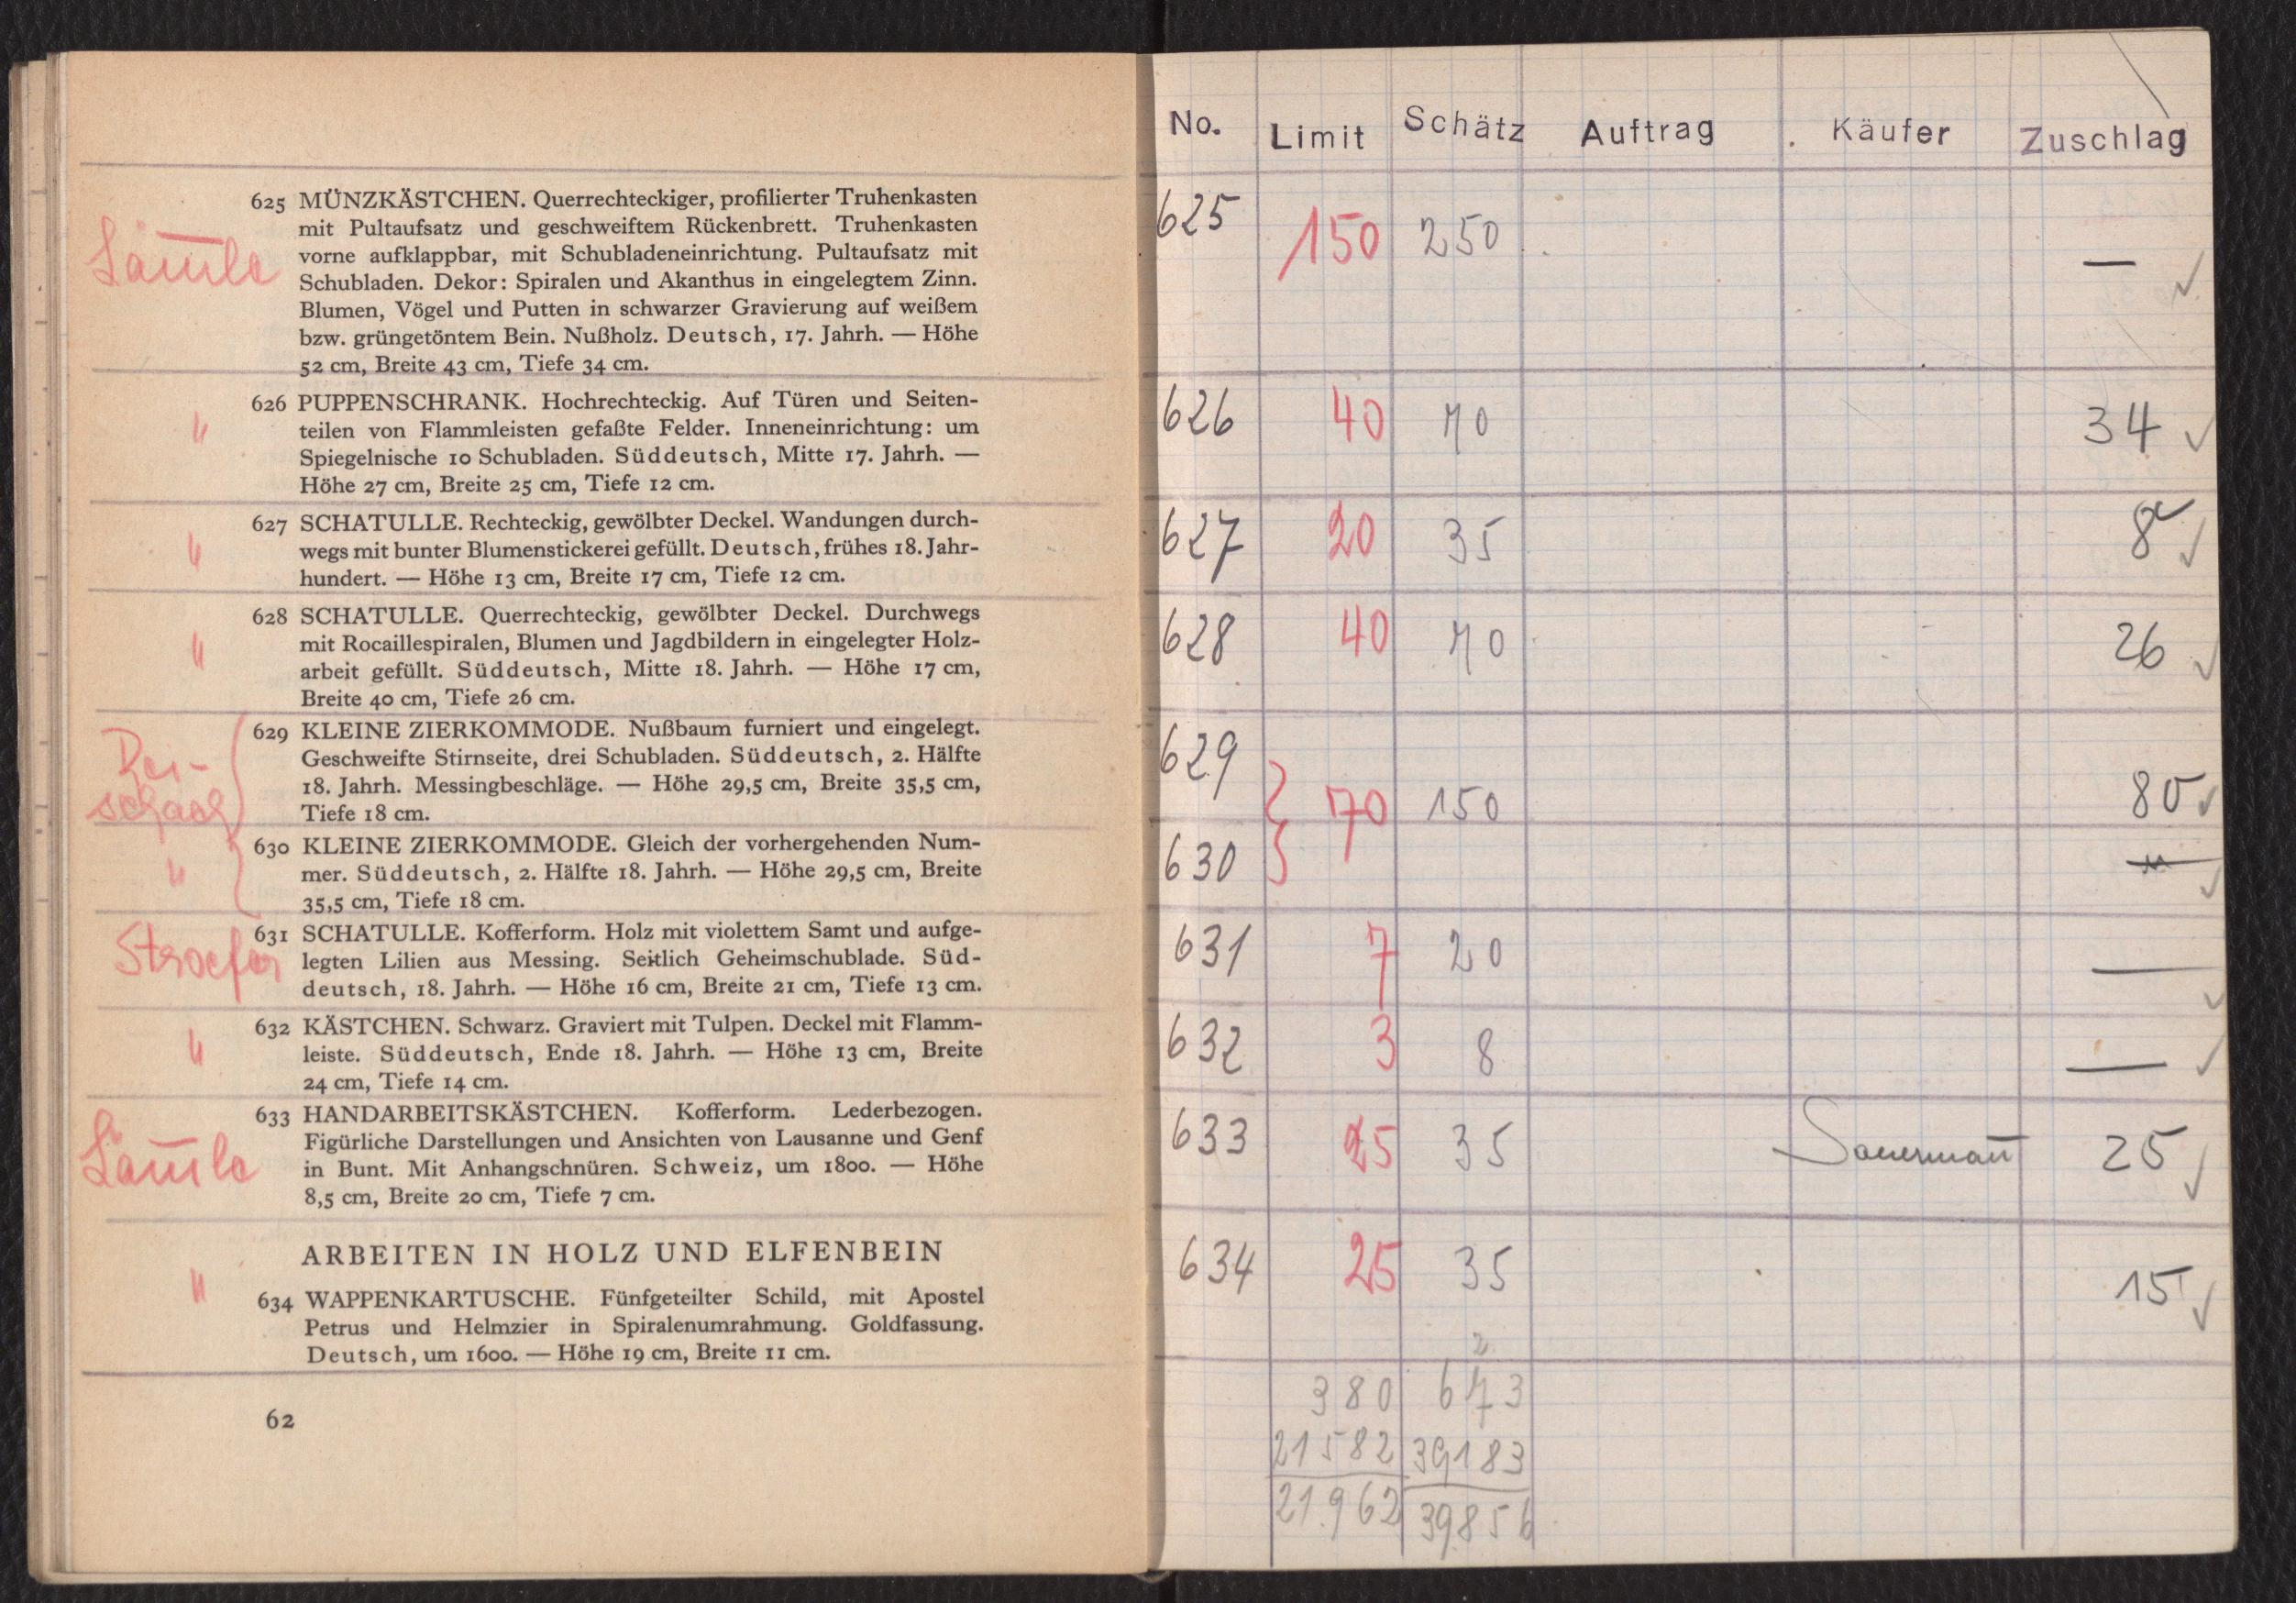 625 MÜNZKÄSTCHEN. Querrechteckiger, profilierter Truhenkasten
mit Pultaufsatz und geschweiftem Rückenbrett. Truhenkasten
vorne aufklappbar, mit Schubladeneinrichtung. Pultaufsatz mit
Schubladen. Dekor: Spiralen und Akanthus in eingelegtem Zinn.
Blumen, Vögel und Putten in schwarzer Gravierung auf weißem
bzw. grüngetöntem Bein. Nußholz. Deutsch, 17. Jahrh. — Höhe
52 cm, Breite 43 cm, Tiefe 34 cm.
"
626 PUPPENSCHRANK. Hochrechteckig. Auf Türen und Seiten-
teilen von Flammleisten gefaßte Felder. Inneneinrichtung: um
Spiegelnische 10 Schubladen. Süddeutsch, Mitte 17. Jahrh. —
Höhe 27 cm, Breite 25 cm, Tiefe 12 cm.
"
627 SCHATULLE. Rechteckig, gewölbter Deckel. Wandungen durch-
wegs mit bunter Blumenstickerei gefüllt. Deutsch, frühes 18. Jahr-
hundert. — Höhe 13 cm, Breite 17 cm, Tiefe 12 cm.
"
628 SCHATULLE. Querrechteckig, gewölbter Deckel. Durchwegs
mit Rocaillespiralen, Blumen und Jagdbildern in eingelegter Holz-
arbeit gefüllt. Süddeutsch, Mitte 18. Jahrh. — Höhe 17 cm,
Breite 40 cm, Tiefe 26 cm.
629 KLEINE ZIERKOMMODE. Nußbaum furniert und eingelegt.
Geschweifte Stirnseite, drei Schubladen. Süddeutsch, 2. Hälfte
18. Jahrh. Messingbeschläge. — Höhe 29,5 cm, Breite 35,5 cm,
Tiefe 18 cm.
"
630 KLEINE ZIERKOMMODE. Gleich der vorhergehenden Num-
mer. Süddeutsch, 2. Hälfte 18. Jahrh. — Höhe 29,5 cm, Breite
35,5 cm, Tiefe 18 cm.
Stroefer
631 SCHATULLE. Kofferform. Holz mit violettem Samt und aufge-
legten Lilien aus Messing. Seitlich Geheimschublade. Süd-
deutsch, 18. Jahrh. — Höhe 16 cm, Breite 21 cm, Tiefe 13 cm.
"
632 KÄSTCHEN. Schwarz. Graviert mit Tulpen. Deckel mit Flamm-
leiste. Süddeutsch, Ende 18. Jahrh. — Höhe 13 cm, Breite
24 cm, Tiefe 14 cm.
633 HANDARBEITSKÄSTCHEN. Kofferform. Lederbezogen.
Figürliche Darstellungen und Ansichten von Lausanne und Genf
in Bunt. Mit Anhangschnüren. Schweiz, um 1800. — Höhe
8,5 cm, Breite 20 cm, Tiefe 7 cm.
ARBEITEN IN HOLZ UND ELFENBEIN
"
634 WAPPENKARTUSCHE. Fünfgeteilter Schild, mit Apostel
Petrus und Helmzier in Spiralenumrahmung. Goldfassung.
Deutsch, um 1600. — Höhe 19 cm, Breite 11 cm.
62
No. Limit Schätz Auftrag Käufer Zuschlag
625 150 250 — ✓
626 40 70 34 ✓
627 20 35 8 ✓
628 40 70 26 ✓
629
70 150 80 ✓
630 " ✓
631 7 20 — ✓
632 3 8 — ✓
633 25 35 25 ✓
634 25 35 15 ✓
2
380 673
21582 39183
21.962 39856